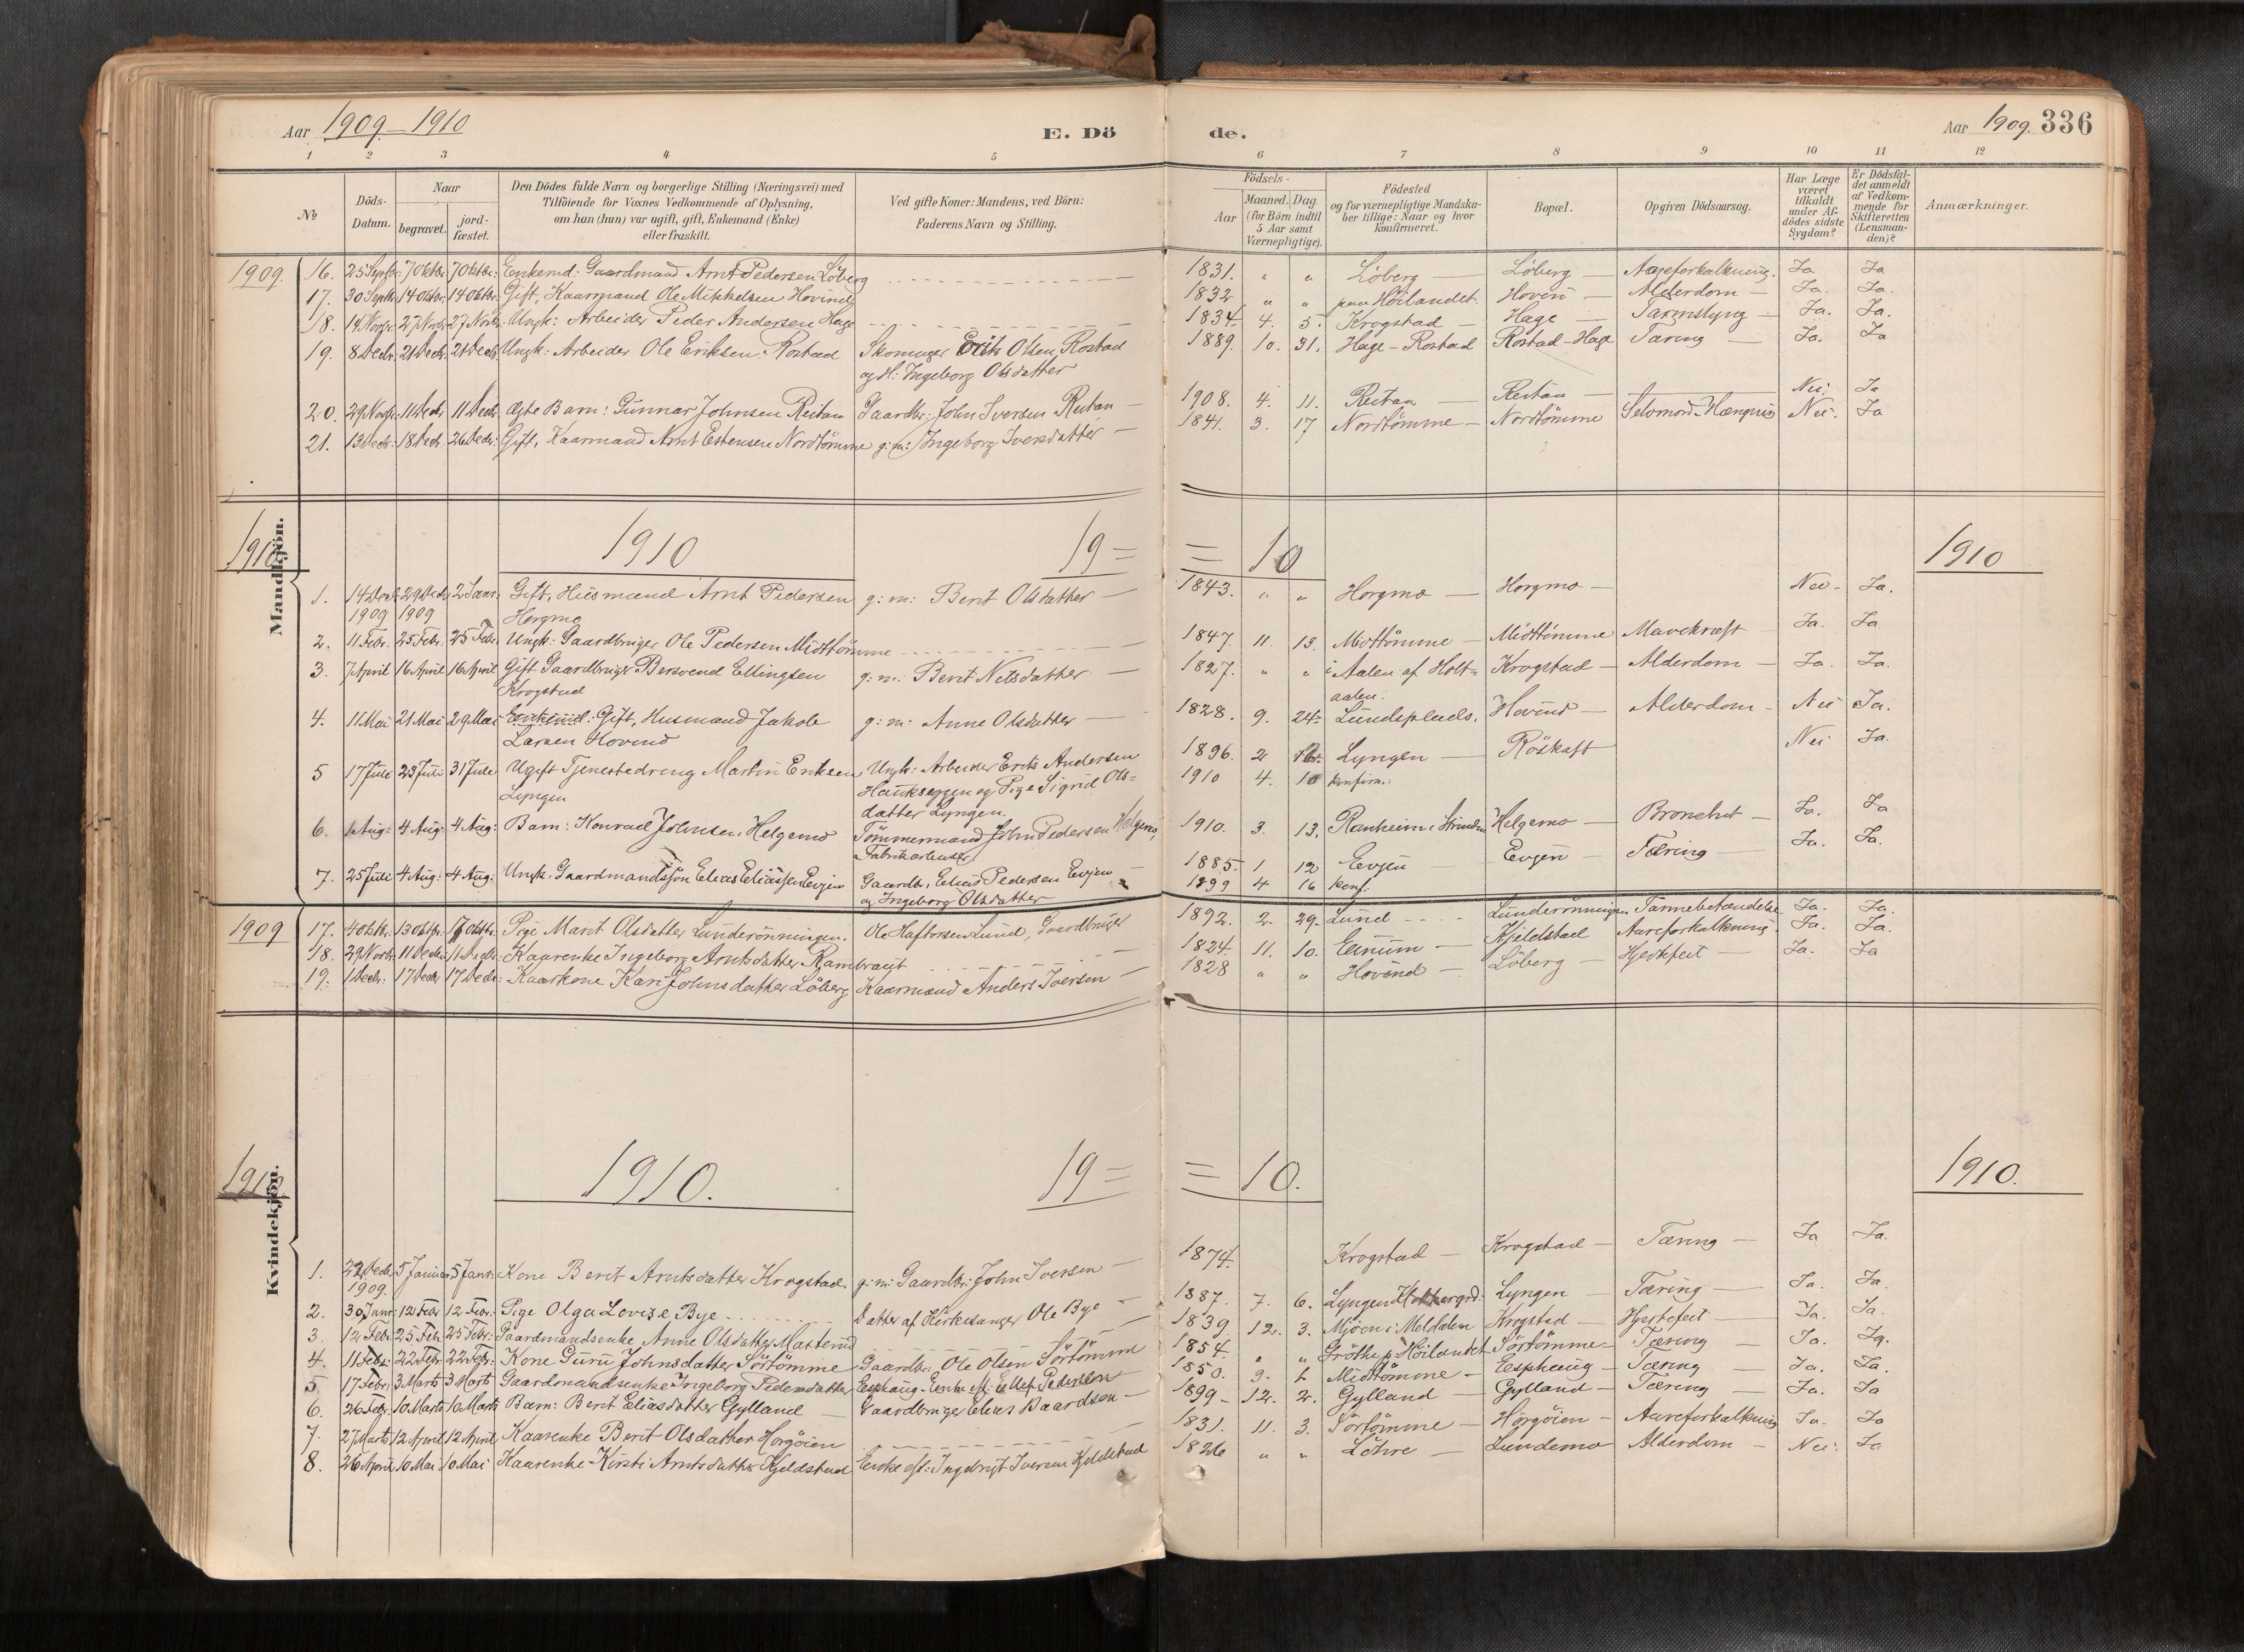 Aar 1909-1910 E. Dö de. Aar 1909. 336
1 2 3 4 5 6 7 8 9 10 11 12
№ Döds-Datum. Naar begravet. jordfæstet. Den Dödes fulde Navn og borgerlige Stilling (Næringsvei) med Tilföiende for Voxnes Vedkommende af Oplysning, om han (hun) var ugift, gift, Enkemand (Enke) eller fraskilt. Ved gifte Koner: Mandens, ved Börn: Faderens Navn og Stilling. Födsels- Aar Maaned. Dag. (for Börn indtil 5 Aar samt Værnepligtige). Födested og for værnepligtige Mandskaber tillige: Naar og hvor konfirmeret. Bopæl. Opgiven Dödsaarsag. Har Læge været tilkaldt under Afdödes sidste Sygdom? Er Dödsfaldet anmeldt af Vedkommende for Skifteretten (Lensmanden)? Anmærkninger.
1909. 16. 25 Septbr. 7 Oktbr. 7 Oktbr. Enkemd: Gaardmand Arnt Pedersen Löberg 1831. " " Löberg — Löberg — Aareforkalkning. Ja Ja
17. 30 Septbr. 14 Oktbr. 14 Oktbr. Gift, Kaarmand Ole Mikkelsen Hovind 1832 " " paa Höilandet. Hovin — Alderdom — Ja. Ja.
18. 14 Novbr. 27 Novbr. 27 Novbr. Ungk: Arbeider Peder Andersen Hage 1834. 4. 5. Krogstad — Hage — Tarmslyng — Ja. Ja.
19. 8 Decbr. 21 Decbr. 21 Decbr. Ungk: Arbeider Ole Eriksen Rostad Skomager Erik Olsen Rostad 1889. 10. 31. Hage-Rostad Rostad-Hage Tæring — Ja. Ja
og H: Ingeborg Olsdatter
20. 29 Novbr. 11 Decbr. 11 Decbr. Ægte Barn: Gunnar Johnsen Reitan Gaardbr: John Iversen Reitan — 1908. 4. 11. Reitan — Reitan — Nei: Ja
21. 13 Decbr. 18 Decbr. 26 Decbr. Gift, Kaarmand Arnt Estensen Nordtömme g: m: Ingeborg Iversdatter — 1841. 3. 17 Nordtömme — Nordtömme Selvmord. Hængning Nei. Ja
Mandkjön.
1910 1910 19= =10 1910
1. 14 Decbr. 29 Decbr. 2 Janr. Gift, Husmand Arnt Pedersen g: m: Berit Olsdatter — 1843. " " Horgmo — Horgmo — Nei — Ja.
1909 1909 Horgmo
2. 11 Febr. 25 Febr. 25 Febr. Ungk. Gaardbruger Ole Pedersen Midttömme 1847. 11. 13. Midttömme — Midttömme Mavekræft Ja. Ja.
3. 7 April 16 April 16 April Gift Gaardbruger Bersvend Ellingsen g: m: Berit Nilsdatter — 1827. " " i Aalen af Holt= Krogstad — Alderdom — Ja. Ja.
Krogstad aalen.
4. 11 Mai 21 Mai 29 Mai Enkemd: Gift, Husmand Jakob g: m: Anne Olsdatter — 1828. 9. 24. Lundsplads. Hovind — Alderdom — Nei Ja.
Larsen Hovind
5 17 Juli 23 Juli 31 Juli Ugift Tjenestedreng Martin Eriksen Ungk: Arbeider Erik Andersen 1896. 2 Lyngen — Röskaft Nei Ja.
Lyngen Haukseggen og Pige Sigrid Ols= 1910 4. 10 konfirm:
datter Lyngen.
6. 1 Aug: 4 Aug: 4 Aug: Barn: Konrad Johnsen Helgemo Tömmermand John Pedersen Helgemo, 1910. 3. 13. Ranheim i Strinden Helgemo — Bronchit — Ja. Ja
Fabrikarbeider
7. 25 Juli 4 Aug: 4 Aug: Ungk. Gaardmandssön Elias Eliassen Evjen Gaardbr. Elias Pedersen Evjen — 1885. 1 12 Evjen Evjen — Tæring — Ja. Ja.
og Ingeborg Olsdatter 1899 4 16 konf.
1909 17. 4 Oktbr. 13 Oktbr. 17 Oktbr. Pige Marit Olsdatter Lunderönningen. Ole Haftorsen Lund, Gaardbruger 1892. 2. 29. Lund Lunderönningen Tarmebetændelse Ja. Ja.
18. 29 Novbr. 11 Decbr. 11 Decbr. Kaarenke Ingeborg Arntsdatter Rambraut 1824. 11. 10. Eenum — Kjeldstad Aareforkalkning Ja. Ja.
19. 1 Decbr. 17 Decbr. 17 Decbr. Kaarkone Kari Johnsdatter Löberg Kaarmand Anders Iversen — 1828 " " Hovind — Löberg — Hjertefeil — Ja. Ja
Kvindekjön.
1910 1910. 19= =10. 1910.
1. 22 Decbr. 5 Januar 5 Janr. Kone Berit Arntsdatter Krogstad. g: m: Gaardbr. John Iversen — 1874. Krogstad — Krogstad — Tæring — Ja Ja.
1909.
2. 30 Janr. 12 Febr. 12 Febr. Pige Olga Lovise Bye Datter af Kirkesanger Ole Bye — 1887. 7. 6. Lyngen Lyngen — Tæring — Ja. Ja.
3. 12 Febr. 25 Febr. 25 Febr. Gaardmandsenke Anne Olsdatter 1839. 12. 3. Mjöen i Meldalen Krogstad — Hjertefeil — Ja. Ja.
4. 11 Febr. 22 Febr. 22 Febr. Kone Guru Johnsdatter Sörtömme Gaardbr. Ole Olsen Sörtömme 1854. " " Gröthe p. Höilandet Sörtömme — Tæring — Ja. Ja.
5. 17 Febr. 3 Marts 3 Marts Gaardmandsenke Ingeborg Pedersdatter Esphaug. Enke ef. Ellef Pedersen 1850. 9. Midttömme — Esphaug — Tæring — Ja. Ja.
6. 26 Febr. 10 Marts 10 Marts Barn: Berit Eliasdatter Gylland — Gaardbruger Elias Baardsen — 1899 — 12. 2. Gylland — Gylland — Tæring — Ja. Ja
7. 27 Marts 12 April 12 April Kaarenke Berit Olsdatter Horgöien 1831. 11. 3. Sörtömme — Horgöien — Aareforkalkning Ja. Ja
8. 26 April 10 Mai 10 Mai Kaarenke Kirsti Arntsdatter Kjeldstad Enke ef: Ingebrigt Iversen Kjeldstad 1826 " " Löhre — Lundemo Alderdom — Nei: Ja